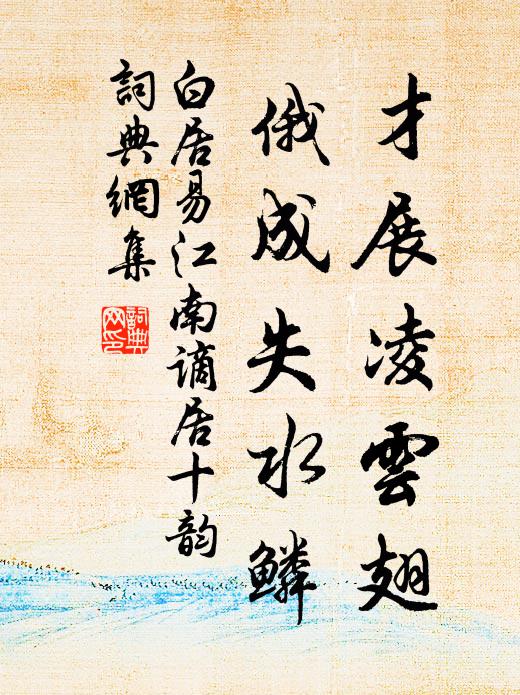 才展凌雲翅
俄成失水鱗
白居易江南謫居十韵
詞典網集
詞典
网印